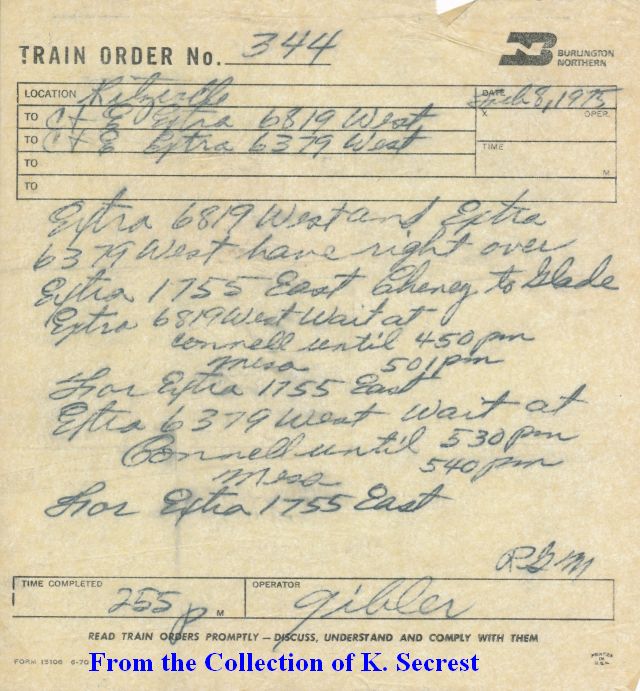 TRAIN ORDER No. 344
BURLINGTON
NORTHERN
LOCATION Ritzville
DATE Feb 8, 1975
TO C + E Extra 6819 West
X OPER.
TO C + E Extra 6379 West
TIME
TO
M
TO
Extra 6819 West and Extra
6379 West have right over
Extra 1755 East Cheney to Glade
Extra 6819 West Wait at
Connell until 450 pm
Mesa 501 pm
For Extra 1755 East
Extra 6379 West Wait at
Connell until 530 pm
Mesa 540 pm
For Extra 1755 East
RGM
TIME COMPLETED
OPERATOR
255 p M
Gibler
READ TRAIN ORDERS PROMPTLY — DISCUSS, UNDERSTAND AND COMPLY WITH THEM
FORM 15106 6-70
PRINTED
IN
U.S.A.
From the Collection of K. Secrest